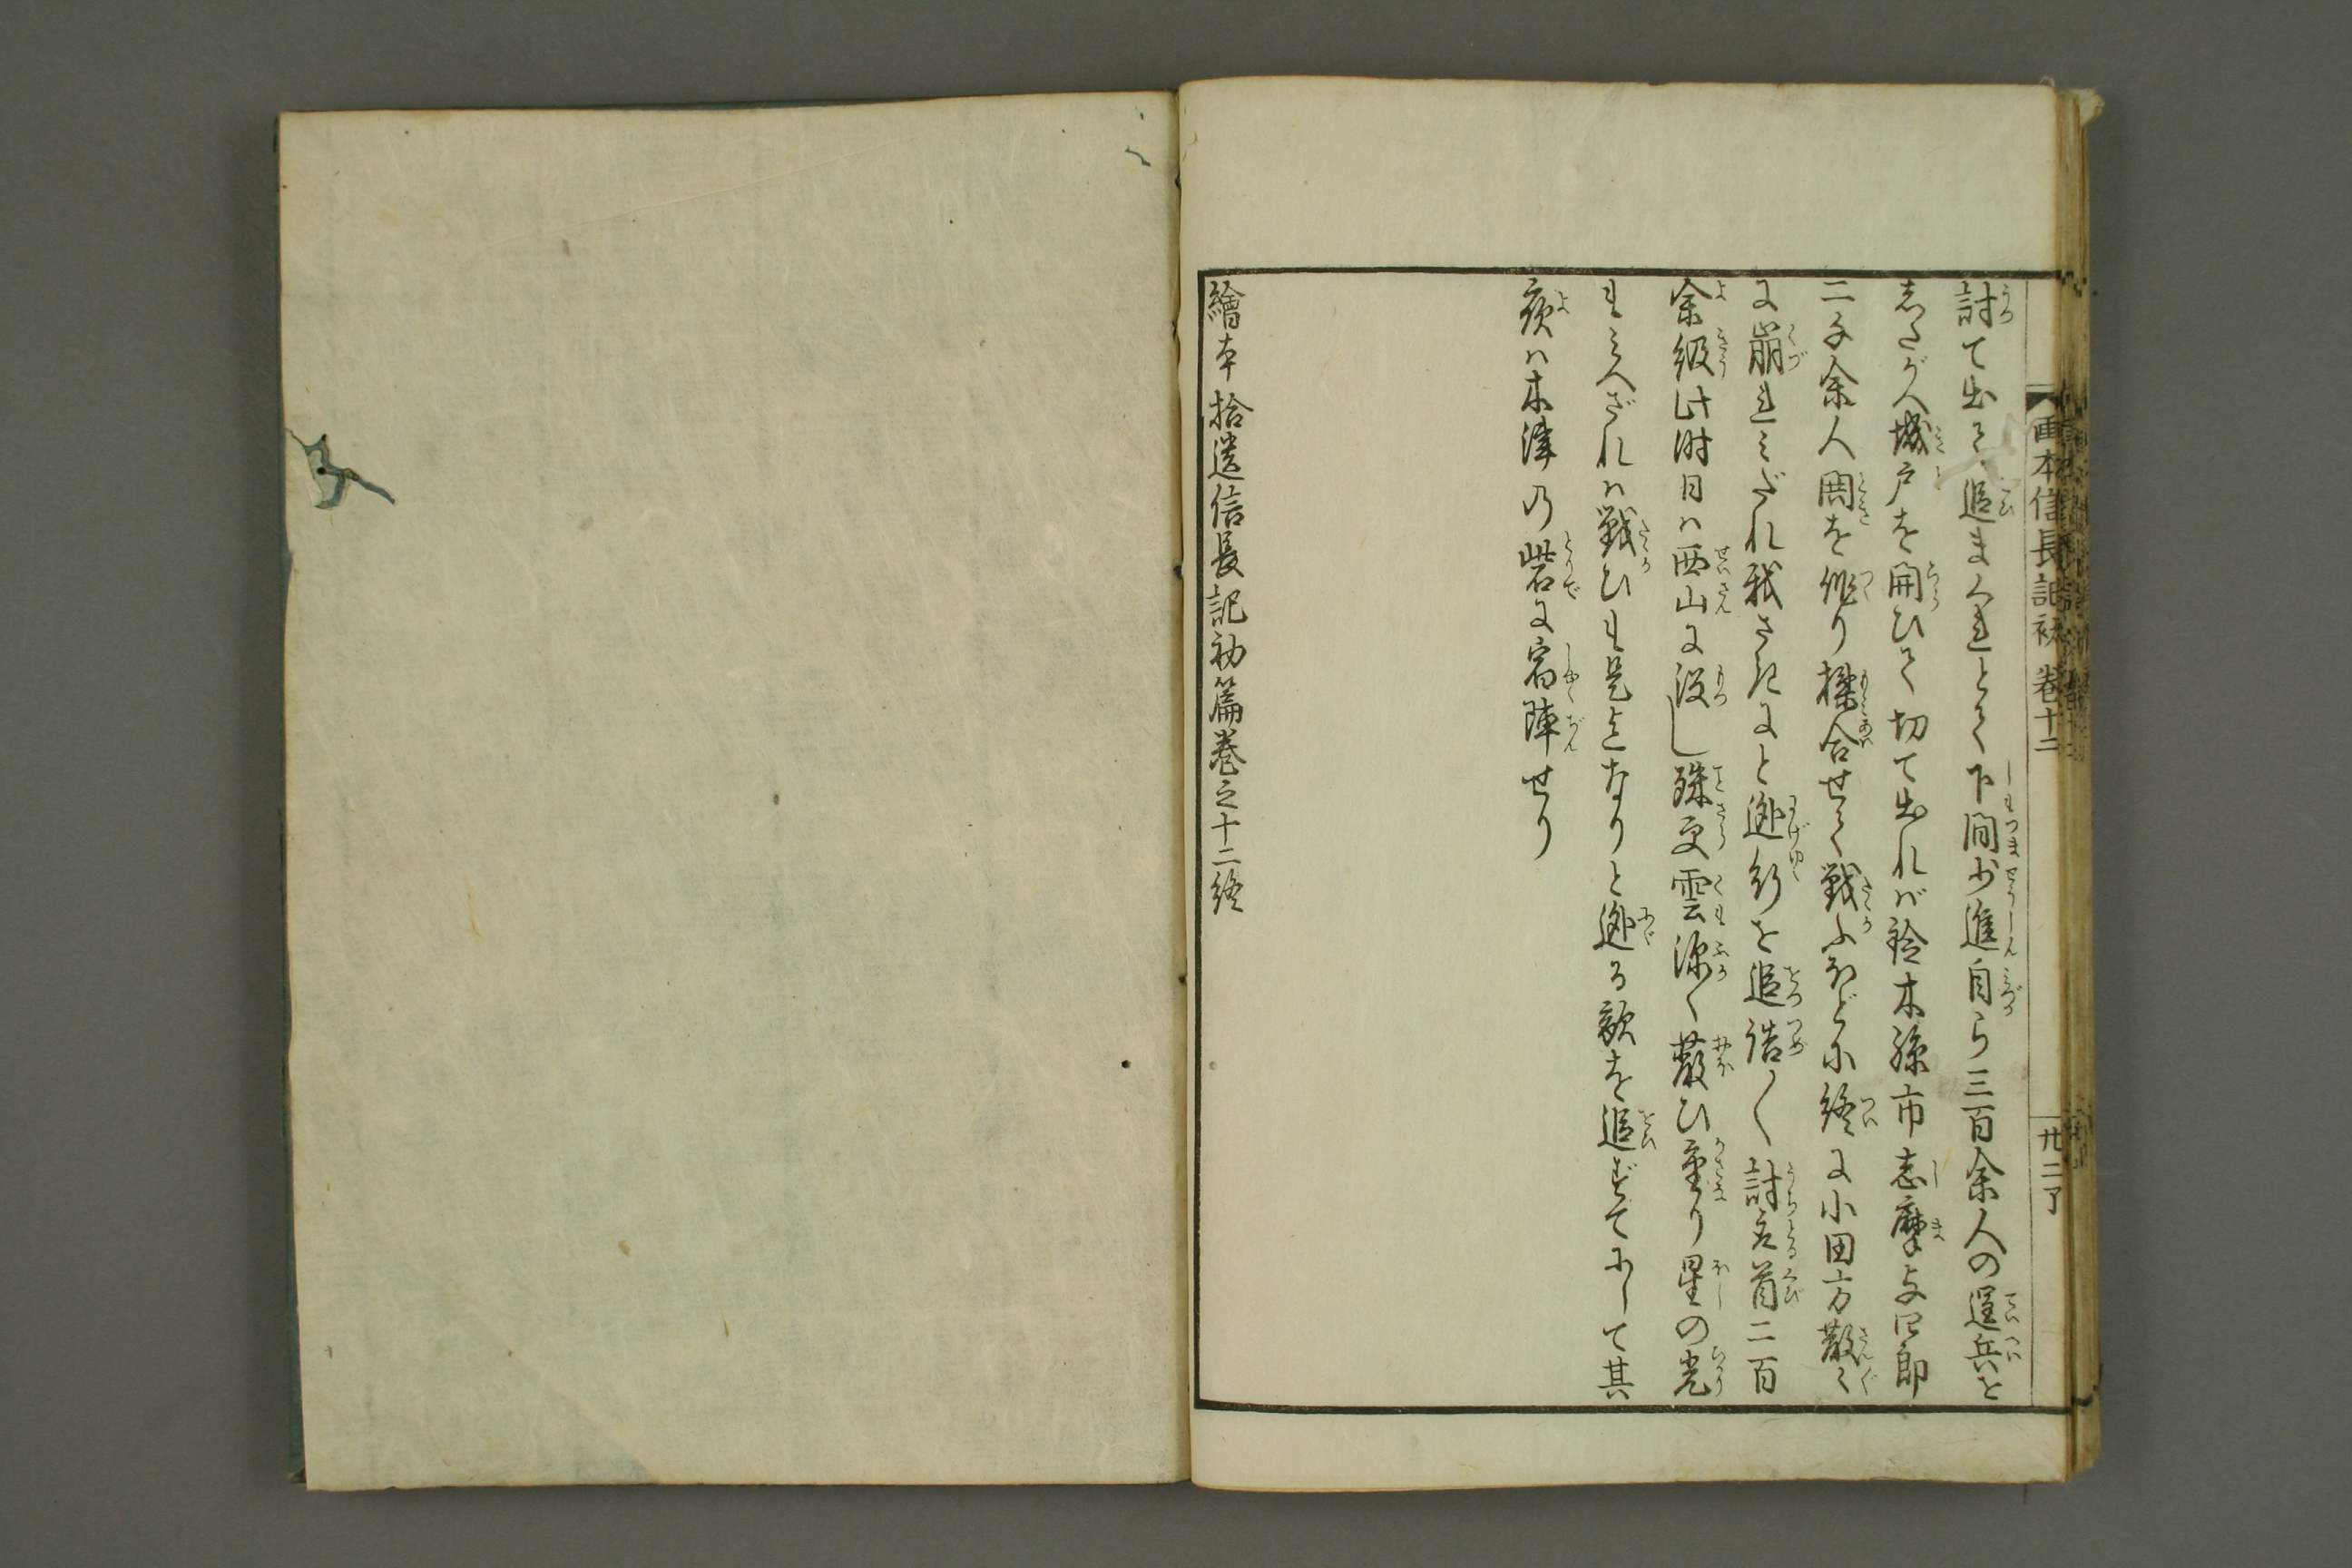 画本信長記初 巻十二 廿二了
討て出て追まくれとて下間少進自ら三百余人の逞兵を
志たがへ城戸を開ひて切て出れば鈴木孫市志摩与四郎
二千余人鬨を作り揉合せて戦ふほどに終に小田方散々
に崩れみだれ我さきにと逃行を追詰〳〵討取首二百
余級此時日は西山に没し殊更雲深く蔽ひ重り星の光
もみへざれは戦ひも是迄なりと逃る敵を追すてにして其
夜は木津の砦に宿陣せり
繪本拾遺信長記初篇巻之十二終